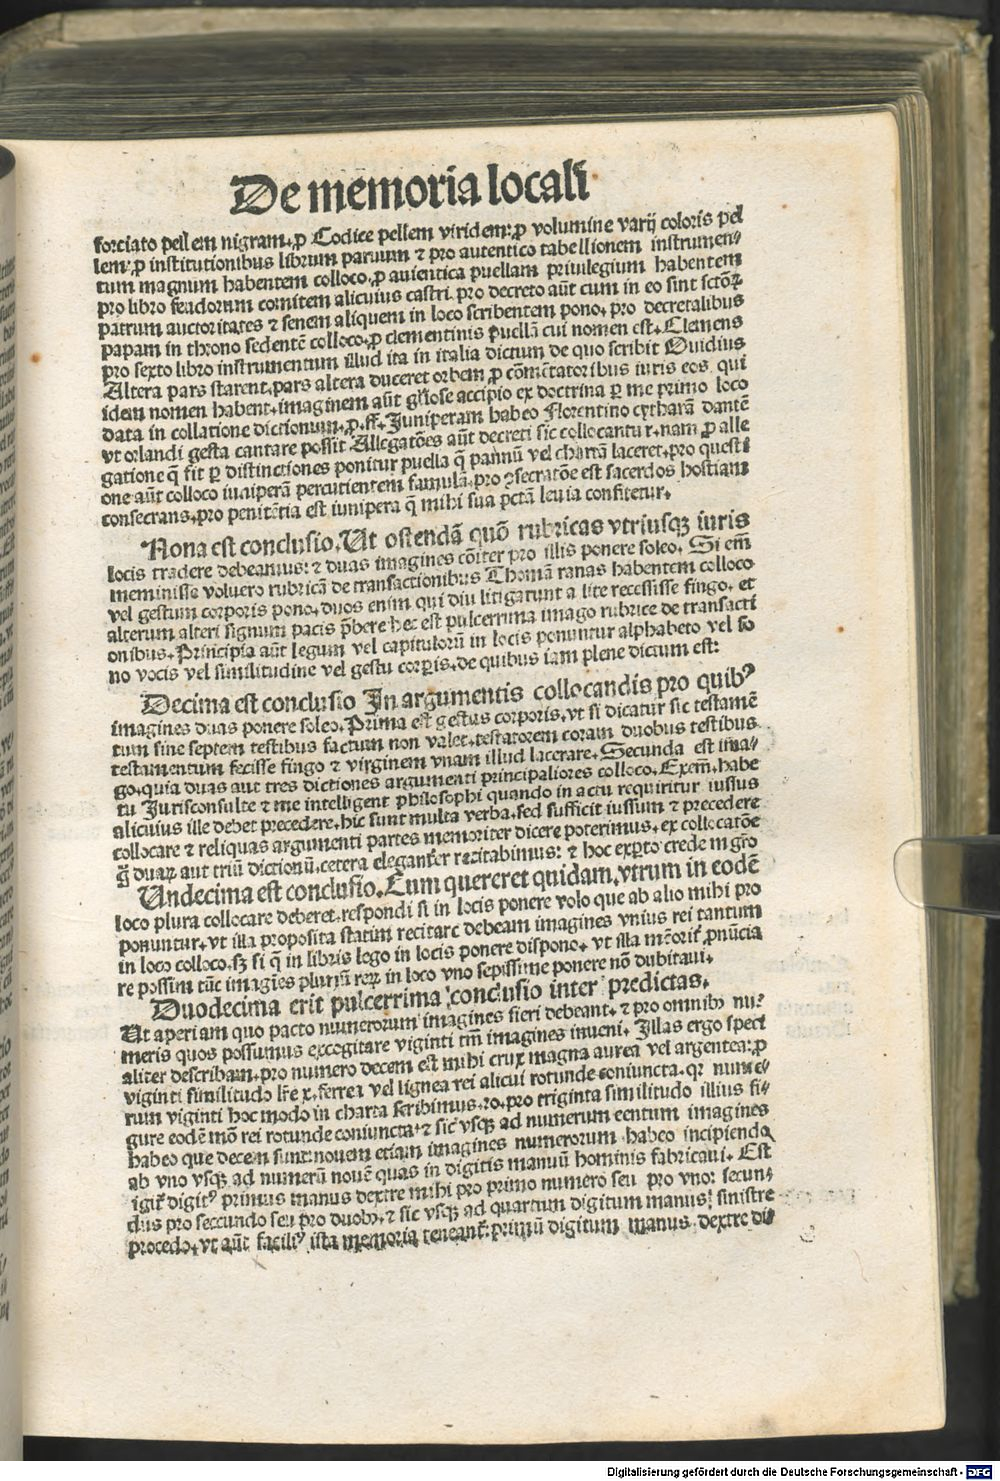 De memoria locali
forciato pellem nigram. ꝓ Codice pellem viridem: ꝓ volumine varij coloris pel
lem: ꝓ institutionibus librum paruum ⁊ pro autentico tabellionem instrumen⸗
tum magnum habentem colloco. ꝓ autentica puellam priuilegium habentem
pro libro feudorum comitem alicuius castri. pro decreto aūt cum in eo sint sctōꝝ
patrum auctoritates ⁊ senem aliquem in loco scribentem pono. pro decretalibus
papam in throno sedentē colloco. ꝓ clementinis puellā cui nomen est. Clemens
pro sexto libro instrumentum illud ita in italia dictum de quo scribit Ouidius
Altera pars staret. pars altera duceret orbem ꝓ cōmētatoribus iuris eos qui
idem nomen habent. imaginem aūt accipio ex doctrina ꝑ me primo loco
data in collatione dictionum. ꝓ. ff. Juniperam habeo Florentino cytharā dantē
vt orlandi gesta cantare possit Allegatōes aūt decreti sic collocantur. nam ꝓ alle
gatione q̄ fit ꝑ distinctiones ponitur puella q̄ pannū vel chartā laceret. pro questi
one aūt colloco iuniperā percutientem famulā. pro ↄsecratōe est sacerdos hostiam
consecrans. pro penitētia est iunipera q̄ mihi sua pctā leuia confitetur.
Nona est conclusio. Ut ostendā quō rubricas vtriusqꝫ iuris
locis tradere debeamus: ⁊ duas imagines cōiter pro illis ponere soleo. Si em̄
meminisse voluero rubricā de transactionibus Thomā ranas habentem colloco
vel gestum corporis pono. duos enim qui diu litigarunt a lite recessisse fingo. et
alterum alteri signum pacis p̄bere hec est pulcerrima imago rubrice de transacti
onibus. Principia aūt legum vel capitulorū in locis ponuntur alphabeto vel so
no vocis vel similitudine vel gestu corꝑis. de quibus iam plene dictum est:
Decima est conclusio In argumentis collocandis pro quibꝰ
imagines duas ponere soleo. Prima est gestus corporis. vt si dicatur sic testamē
tum sine septem testibus factum non valet. testatorem coram duobus testibus
testamentum fecisse fingo ⁊ virginem vnam illud lacerare. Secunda est ima⸗
go. quia duas aut tres dictiones argumenti principaliores colloco. Exem̄. habe
tu Jurisconsulte ⁊ me intelligent philosophi quando in actu requiritur iussus
alicuius ille debet precedere. hic sunt multa verba. sed sufficit iussum ⁊ precedere
collocare ⁊ reliquas argumenti partes memoriter dicere poterimus. ex collocatōe
duaꝝ aut triū dictionū. cetera eleganter recitabimus: ⁊ hoc exꝑto crede mgr̄o
Undecima est conclusio. Cum quereret quidam. vtrum in eodē
loco plura collocare deberet. respondi si in locis ponere volo que ab alio mihi pro
ponuntur. vt illa proposita statim recitare debeam imagines vnius rei tantum
in loco colloco. sꝫ si q̄ in libris lego in locis ponere dispono. vt illa mēorit̄ ꝓnūcia
re possim tūc imagīes pluriū reꝝ in loco vno sepissime ponere nō dubitaui.
Duodecima erit pulcerrima conclusio inter predictas.
Ut aperiam quo pacto numerorum imagines fieri debeant. ⁊ pro omnibꝰ nu⸗
meris quos possumus excogitare viginti tm̄ imagines inueni. Illas ergo speci
aliter describam. pro numero decem est mihi crux magna aurea vel argentea: ꝓ
viginti similitudo lr̄e x. ferrea vel lignea rei alicui rotunde coniuncta. qꝛ nume⸗
rum viginti hoc modo in charta scribimus. 20. pro triginta similitudo illius fi⸗
gure eodē mō rei rotunde coniuncta. ⁊ sic vsqꝫ ad numerum centum imagines
habeo que decem sunt: nouem etiam imagines numerorum habeo incipiendo
ab vno vsqꝫ ad numerū nouē quas in digitis manuū hominis fabricaui. Est
igit̄ digitꝰ primus manus dextre mihi pro primo numero seu pro vno: secun⸗
dus pro seccundo seu pro duobꝰ. ⁊ sic vsqꝫ ad quartum digitum manus sinistre
procedo. vt aūt faciliꝰ ista memoria teneant̄: primū digitum manus dextre di⸗
Digitalisierung gefördert durch die Deutsche Forschungsgemeinschaft - DFG